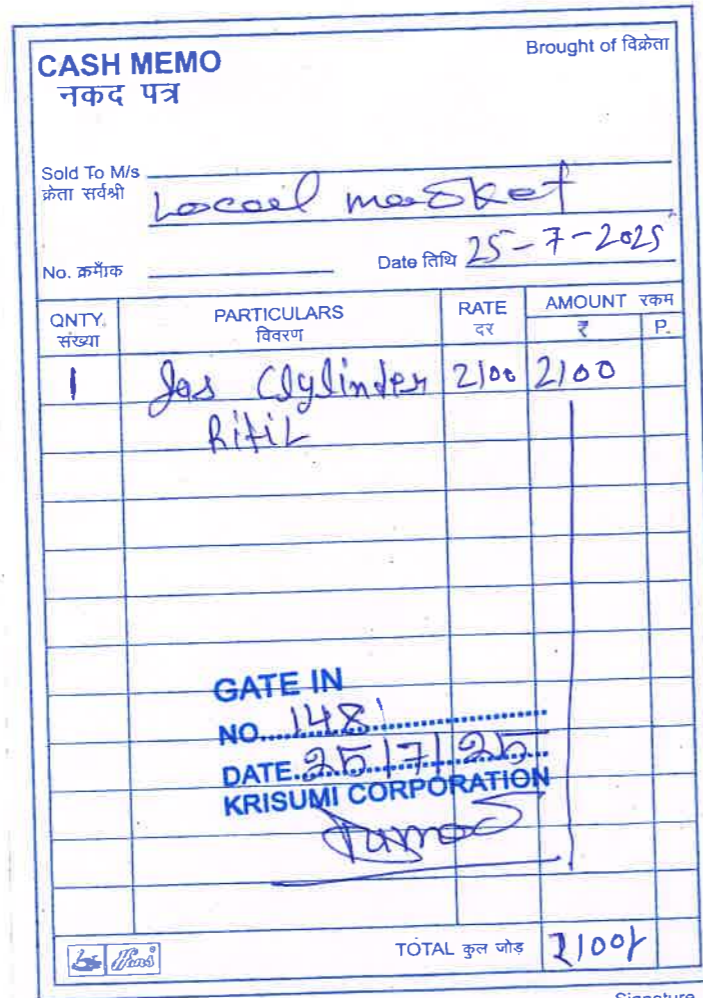 CASH MEMO
नकद पत्र
Brought of विक्रेता
Sold To M/s
क्रेता सर्वश्री Local market
No. क्रमाँक
Date तिथि 25-7-2025
QNTY. संख्या PARTICULARS विवरण RATE दर AMOUNT रकम ₹ P.
1 Gas Clylinder 2100 2100
Rifil
GATE IN
NO. 148
DATE. 25/7/25
KRISUMI CORPORATION
TOTAL कुल जोड़ 2100/
Signature